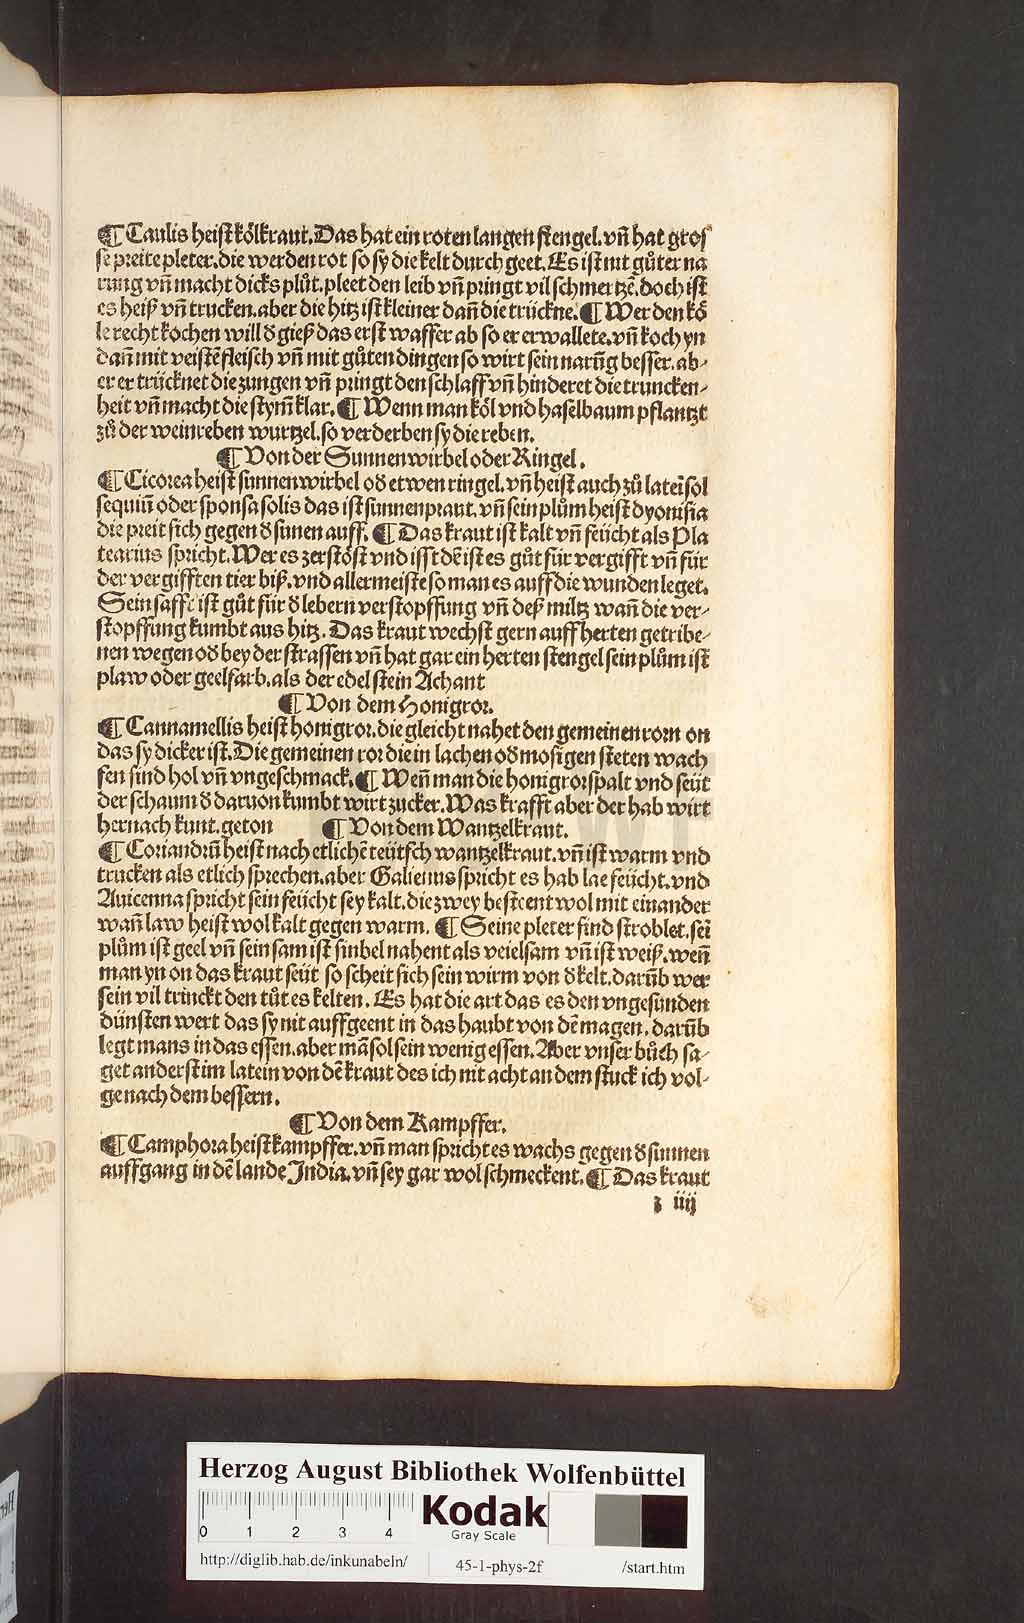 ¶ Caulis heist kölkraut. Das hat ein roten langen stengel. vn̄ hat gros
se preite pleter. die werden rot so sy die kelt durch geet. Es ist nit gůter na
rung vn̄ macht dicks plůt. pleet den leib vn̄ pringt vil schmertzē. doch ist
es heiß vn̄ trucken. aber die hitz ist kleiner dan̄ die trückne. ¶ Wer den kö
le recht kochen will d̕ gieß das erst wasser ab so er erwallete. vn̄ koch yn
dan̄ mit veistē fleisch vn̄ mit gůten dingen so wirt sein narūg besser. ab⸗
er er trücknet die zungen vn̄ pringt den schlaff vn̄ hinderet die truncken⸗
heit vn̄ macht die stym̄ klar. ¶ Wenn man köl vnd haselbaum pflantzt
zů der weinreben wurtzel. so verderben sy die reben.
¶ Von der Sunnenwirbel oder Ringel.
¶ Cicorea heist sunnenwirbel od̕ etwen ringel. vn̄ heist auch zů lateī sol
sequiū oder sponsa solis das ist sunnenpraut. vn̄ sein plům heist dyonisia
die preit sich gegen d̕ sunen auff. ¶ Das kraut ist kalt vn̄ feücht als Pla
tearius spricht. Wer es zerstöst vnd isst dē ist es gůt für vergifft vn̄ für
der vergifften tier biß. vnd allermeiste so man es auff die wunden leget.
Sein safft ist gůt für d̕ lebern verstopffung vn̄ deß miltz wan̄ die ver⸗
stopffung kumbt aus hitz. Das kraut wechst gern auff herten getribe⸗
nen wegen od̕ bey der strassen vn̄ hat gar ein herten stengel sein plům ist
plaw oder geelfarb. als der edel stein Achant
¶ Von dem Honigror.
¶ Cannamellis heist honigror. die gleicht nahet den gemeinen rorn on
das sy dicker ist. Die gemeinen ror die in lachen od̕ mosigen steten wach
sen sind hol vn̄ vngeschmack. ¶ Wen̄ man die honigror spalt vnd seüt
der schaum d̕ daruon kumbt wirt zucker. Was krafft aber der hab wirt
hernach kunt. geton ¶ Von dem Wantzelkraut.
¶ Coriandrū heist nach etlichē teütsch wantzelkraut. vn̄ ist warm vnd
trucken als etlich sprechen. aber Galienus spricht es hab lae feücht. vnd
Auicenna spricht sein feücht sey kalt. die zwey besteent wol mit einander
wan̄ law heist wol kalt gegen warm. ¶ Seine pleter sind stroblet. seī
plům ist geel vn̄ sein sam ist sinbel nahent als veielsam vn̄ ist weiß. wen̄
man yn on das kraut seüt so scheit sich sein wirm von d̕ kelt. darūb wer
sein vil trinckt den tůt es kelten. Es hat die art das es den vngesunden
dünsten wert das sy nit auffgeent in das haubt von dē magen. darūb
legt mans in das essen. aber mā sol sein wenig essen. Aber vnser bůch sa⸗
get anderst im latein von dē kraut des ich nit acht an dem stuck ich vol⸗
ge nach dem bessern.
¶ Von dem Kampffer.
¶ Camphora heist kampffer. vn̄ man spricht es wachs gegen d̕ sunnen
auffgang in dē lande India. vn̄ sey gar wol schmeckent. ¶ Das kraut
z iiij
Herzog August Bibliothek Wolfenbüttel
0 1 2 3 4
Kodak
Gray Scale
http://diglib.hab.de/inkunabeln/ 45-1-phys-2f /start.htm